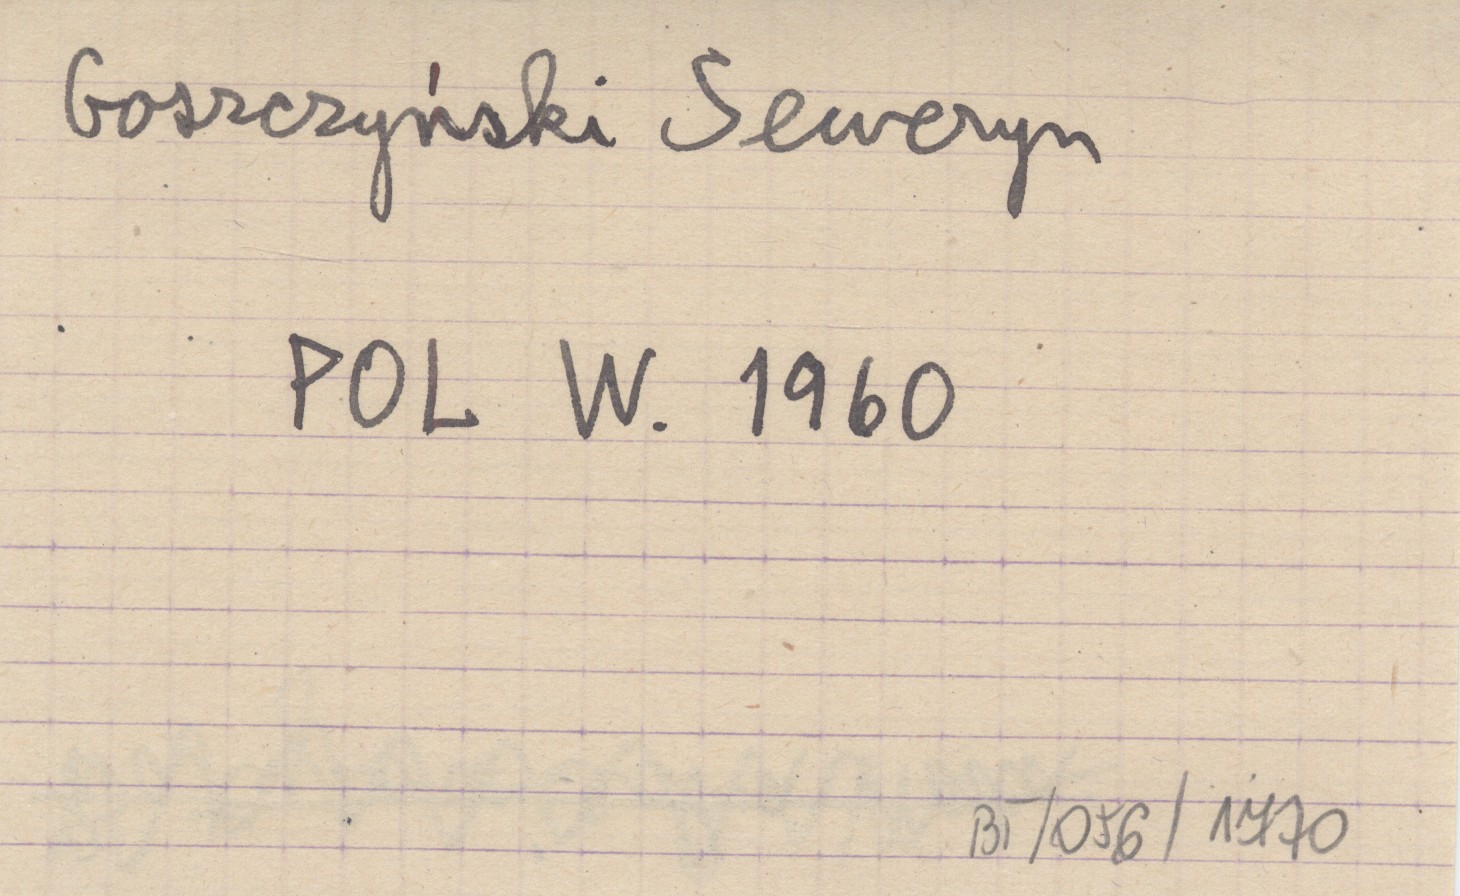 Goszczyński Seweryn
POL W. 1960
BI/056/1770